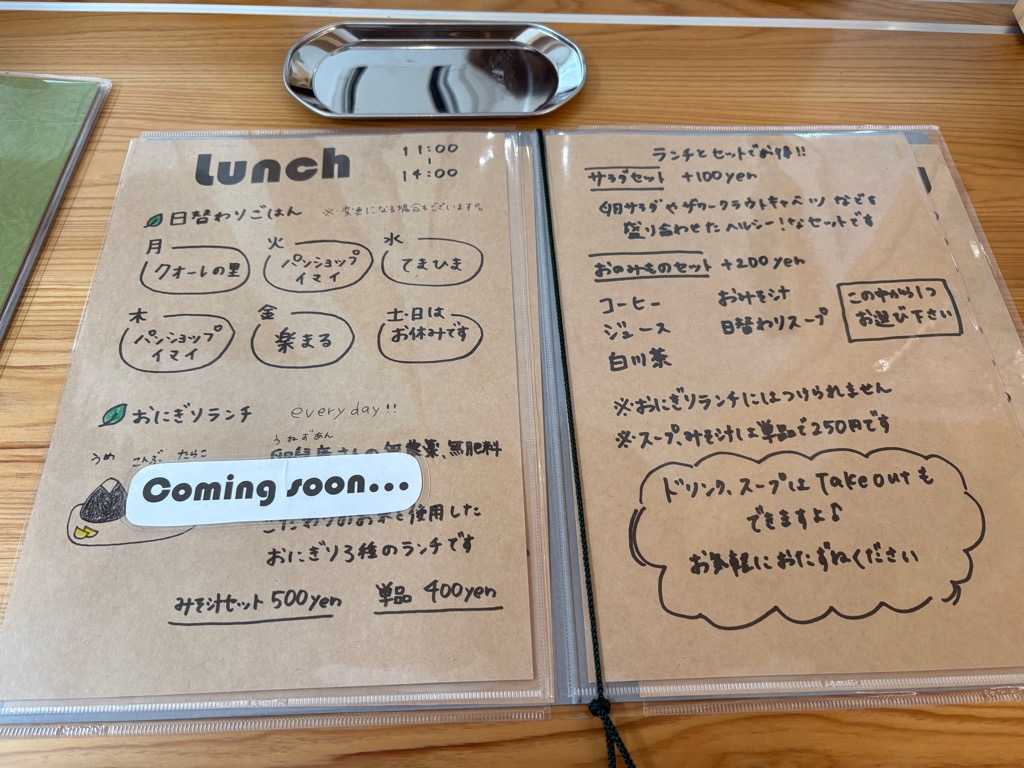 Lunch
11:00
|
14:00
日替わりごはん ※変更になる場合もございます。
月 火 水
クオーレの里 パンショップイマイ てまひま
木 金 土・日は
パンショップイマイ 楽まる お休みです
おにぎりランチ everyday!!
うねずあん
うめ こんぶ たらこ
無農薬、無肥料
Coming soon...
使用した
おにぎり3種のランチです
みそ汁セット 500yen 単品 400yen
ランチとセットでお得!!
サラダセット +100yen
サラダやザワークラウトキャベツなどです
盛り合わせたヘルシー!なセットです
おのみものセット +200yen
コーヒー おみそ汁
ジュース 日替わりスープ
白川茶
この中から1つ
お選び下さい
※おにぎりランチにはつけられません
※スープ、みそ汁は単品で250円です
ドリンク、スープはTakeoutも
できますよ♪
お気軽におたずねください